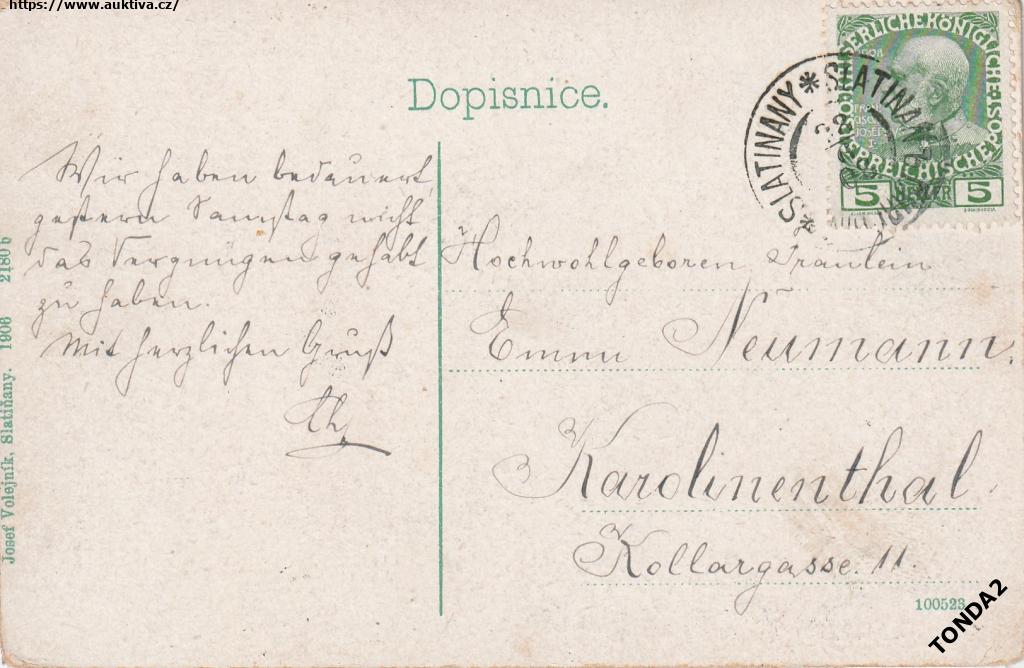 https://www.auktiva.cz/
Dopisnice.
Wir haben bedauert
gestern Samstag nicht
das Vergnügen gehabt
zu haben.
Mit herzlichen Gruß
Hochwohlgeboren Fräulein
Emma Neumann.
Karolinenthal
Kollargasse. 11.
SLATINANY * SLATINANY *
5 5
Josef Volejník, Slatiňany. 1906 2180 b
100523
TONDA2